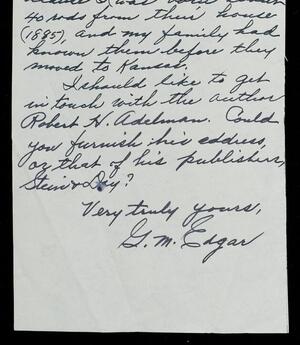 I was born about
40 rods from their house
(1885), and my family had
known them before they
moved to Kansas.
I should like to get
in touch with the author
Robert H. Adelman. Could
you furnish his address,
or that of his publishers,
Stein & Day?
Very truly yours,
G. M. Edgar